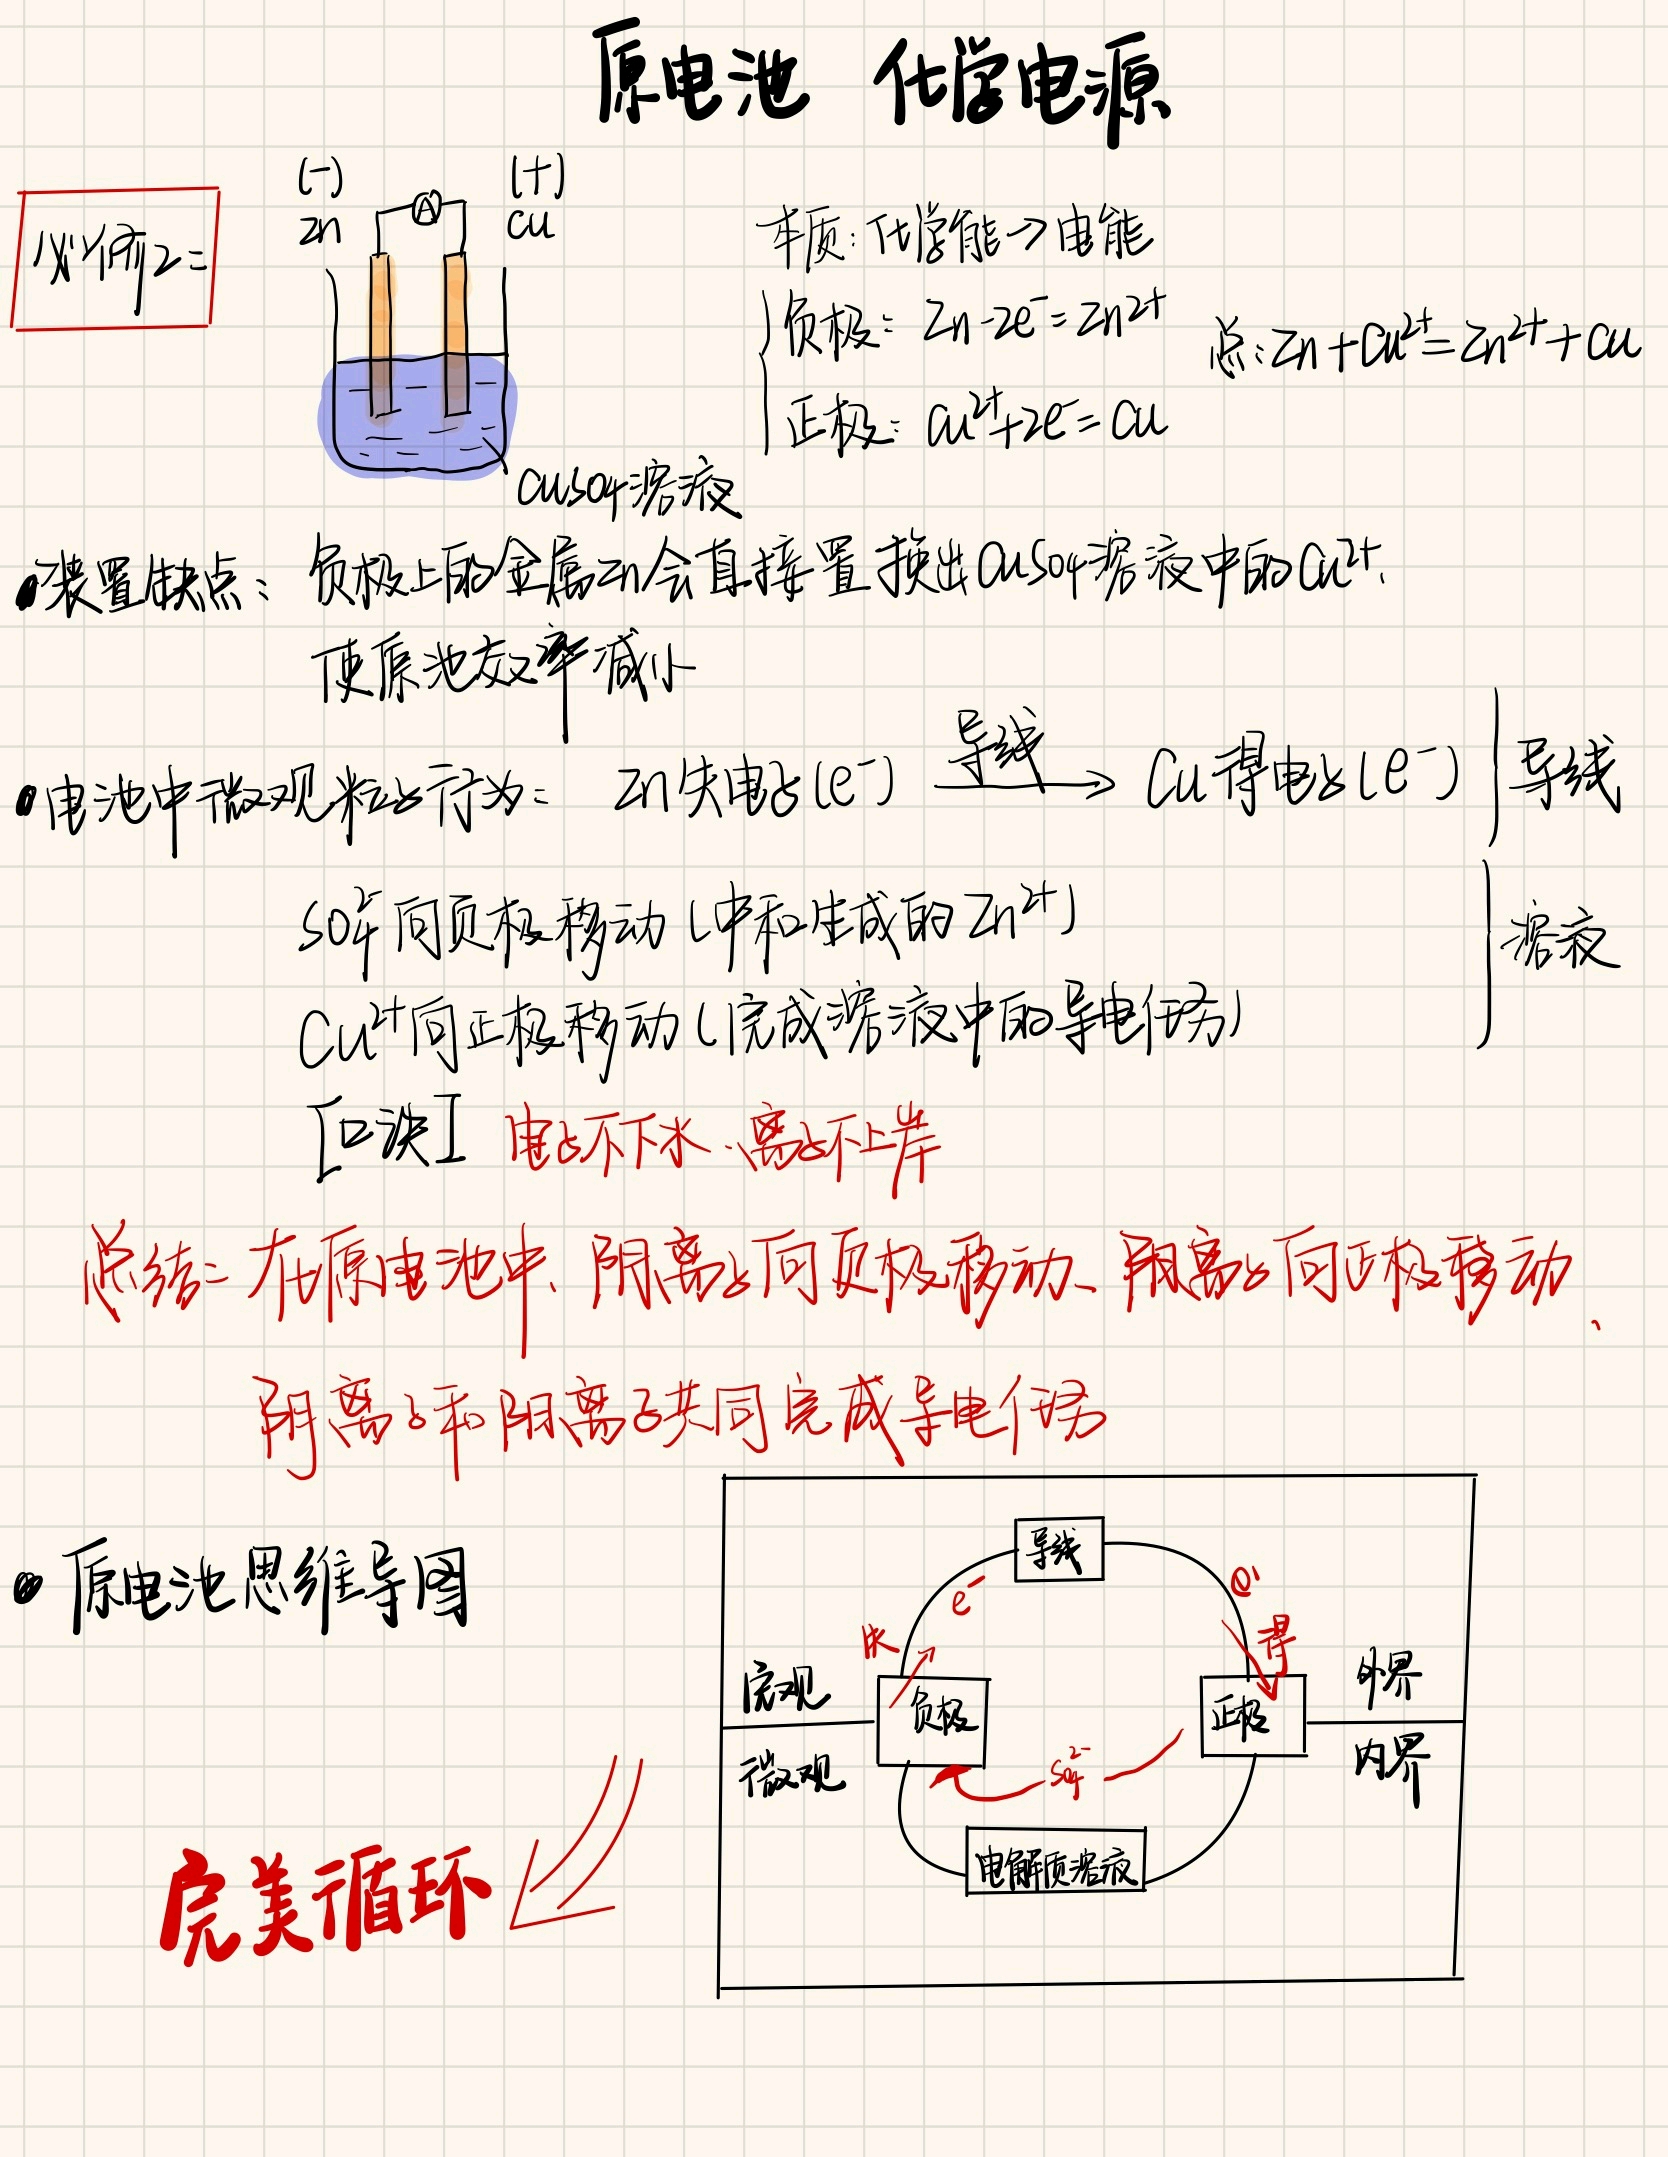 原电池 化学电源
必修2:
(-) (+)
Zn A Cu
CuSO4溶液
本质:化学能→电能
负极: Zn-2e⁻=Zn²⁺
正极: Cu²⁺+2e⁻=Cu
总:Zn+Cu²⁺=Zn²⁺+Cu
装置缺点: 负极上的金属Zn会直接置换出CuSO4溶液中的Cu²⁺,
使原池效率减小
电池中微观粒子行为: Zn失电子(e⁻) 导线→ Cu得电子(e⁻) 导线
SO4²⁻向负极移动(中和生成的Zn²⁺)
Cu²⁺向正极移动(完成溶液中的导电任务)
溶液
[口诀] 电子不下水、离子不上岸
总结: 在原电池中、阴离子向负极移动、阳离子向正极移动、
阴离子和阳离子共同完成导电任务
原电池思维导图
导线
e⁻ e⁻
失 得
宏观 负极 正极 外界
微观 SO4²⁻ 内界
电解质溶液
完美循环